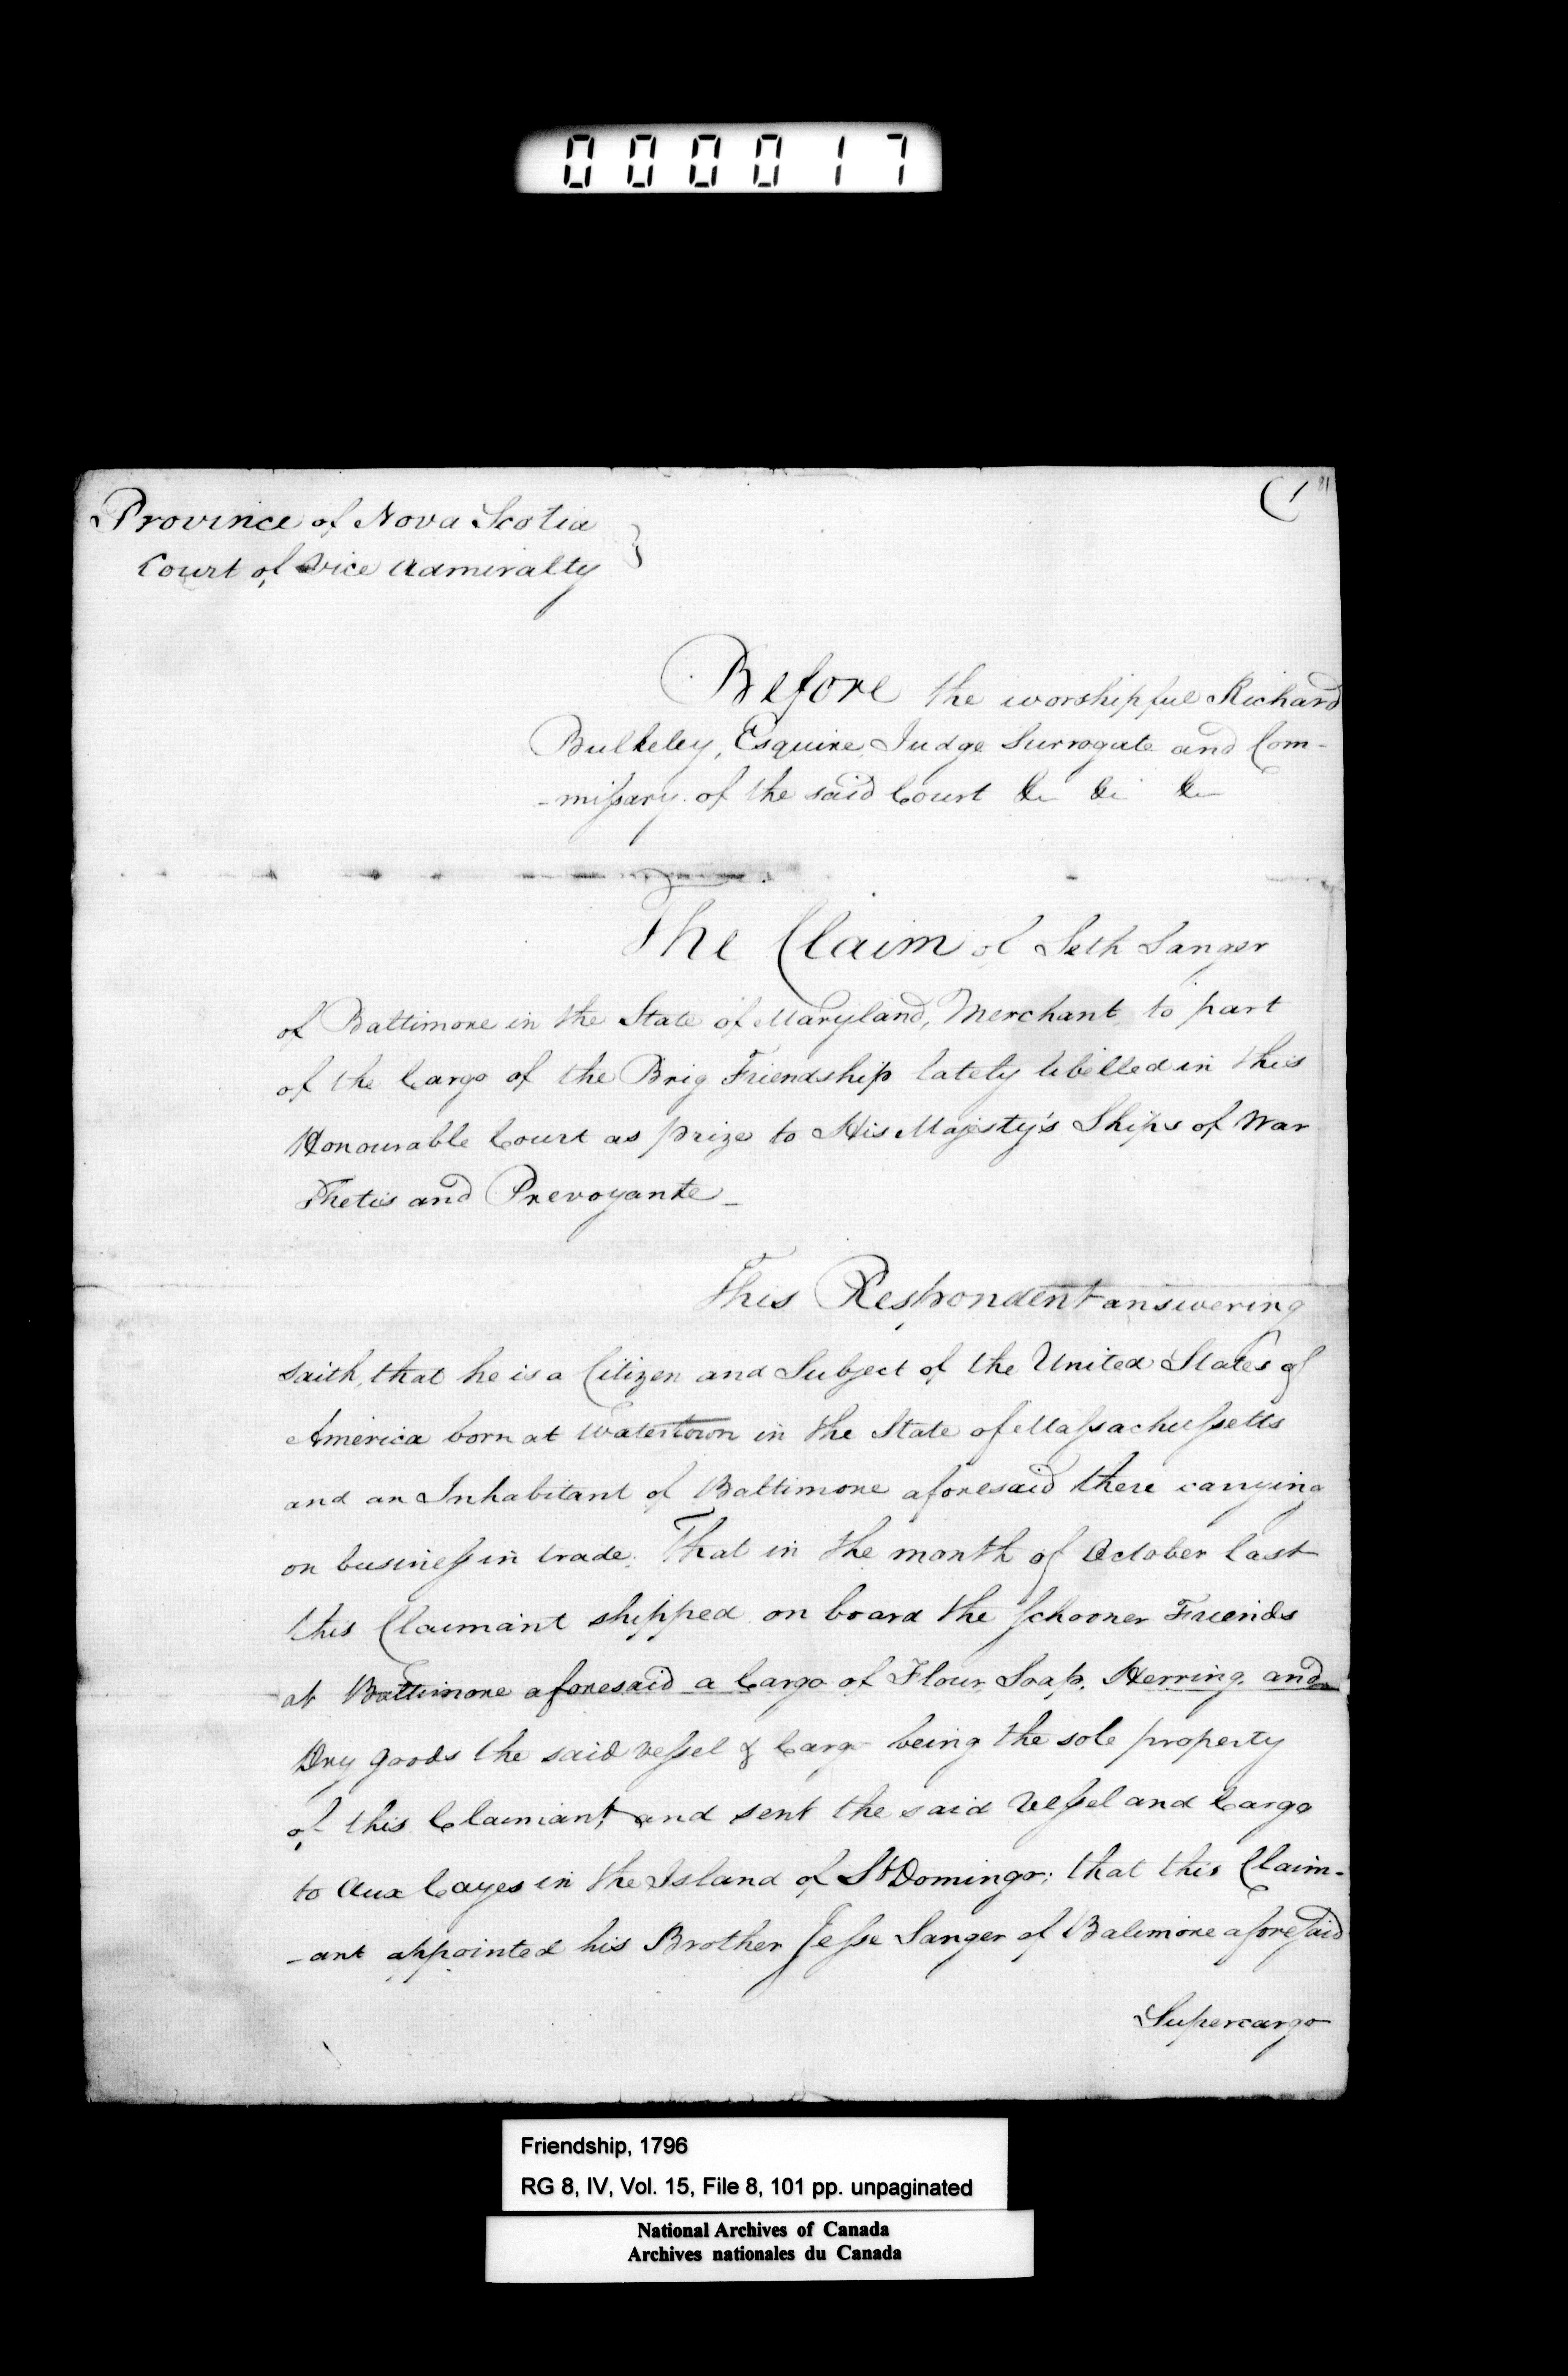 000017
(1
81
Province of Nova Scotia
Court of Vice Admiralty }
Before the worshipful Richard
Bulkeley, Esquire, Judge Surrogate and Com-
-miſsary of the said Court &c &c &c
The Claim of Seth Sanger
of Baltimore in the State of Maryland, Merchant, to part
of the Cargo of the Brig Friendship lately libelled in this
Honourable Court as prize to His Majesty's Ships of War
Thetis and Prevoyante_
This Respondent answering
saith, that he is a Citizen and Subject of the United States of
America born at Watertown in the State of Maſsachuſsetts
and an Inhabitant of Baltimore aforesaid there carrying
on buſineſs in trade. That in the month of October last
this Claimant shipped on board the ſchooner Friends
at Baltimore aforesaid a Cargo of Flour, Soap, Herring, and
Dry goods the said veſsel & Cargo being the sole property
of this Claimant, and sent the said Veſsel and Cargo
to Aux Cayes in the Island of St Domingo; that this Claim-
-ant appointed his Brother Jeſse Sanger of Balimore aforeſaid
Supercargo
Friendship, 1796
RG 8, IV, Vol. 15, File 8, 101 pp. unpaginated
National Archives of Canada
Archives nationales du Canada